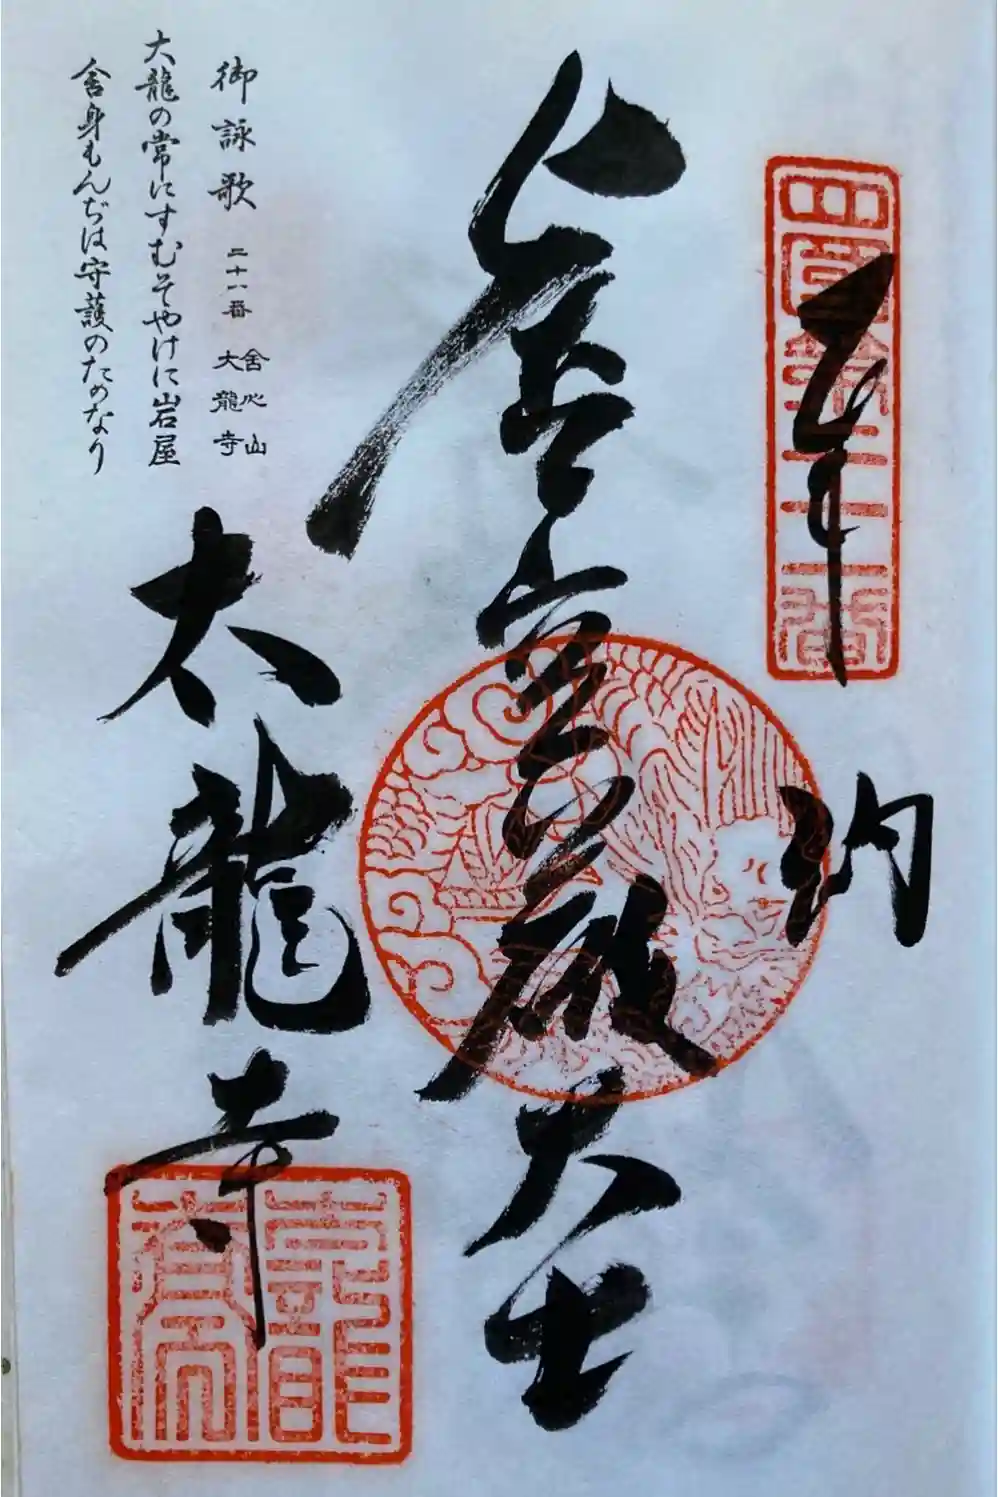 四国第二十一番
奉納
虚空蔵大士
太龍寺
御詠歌 二十一番 舎心山 大龍寺
大龍の常にすむそやけに岩屋
舎身もんぢは守護のためなり